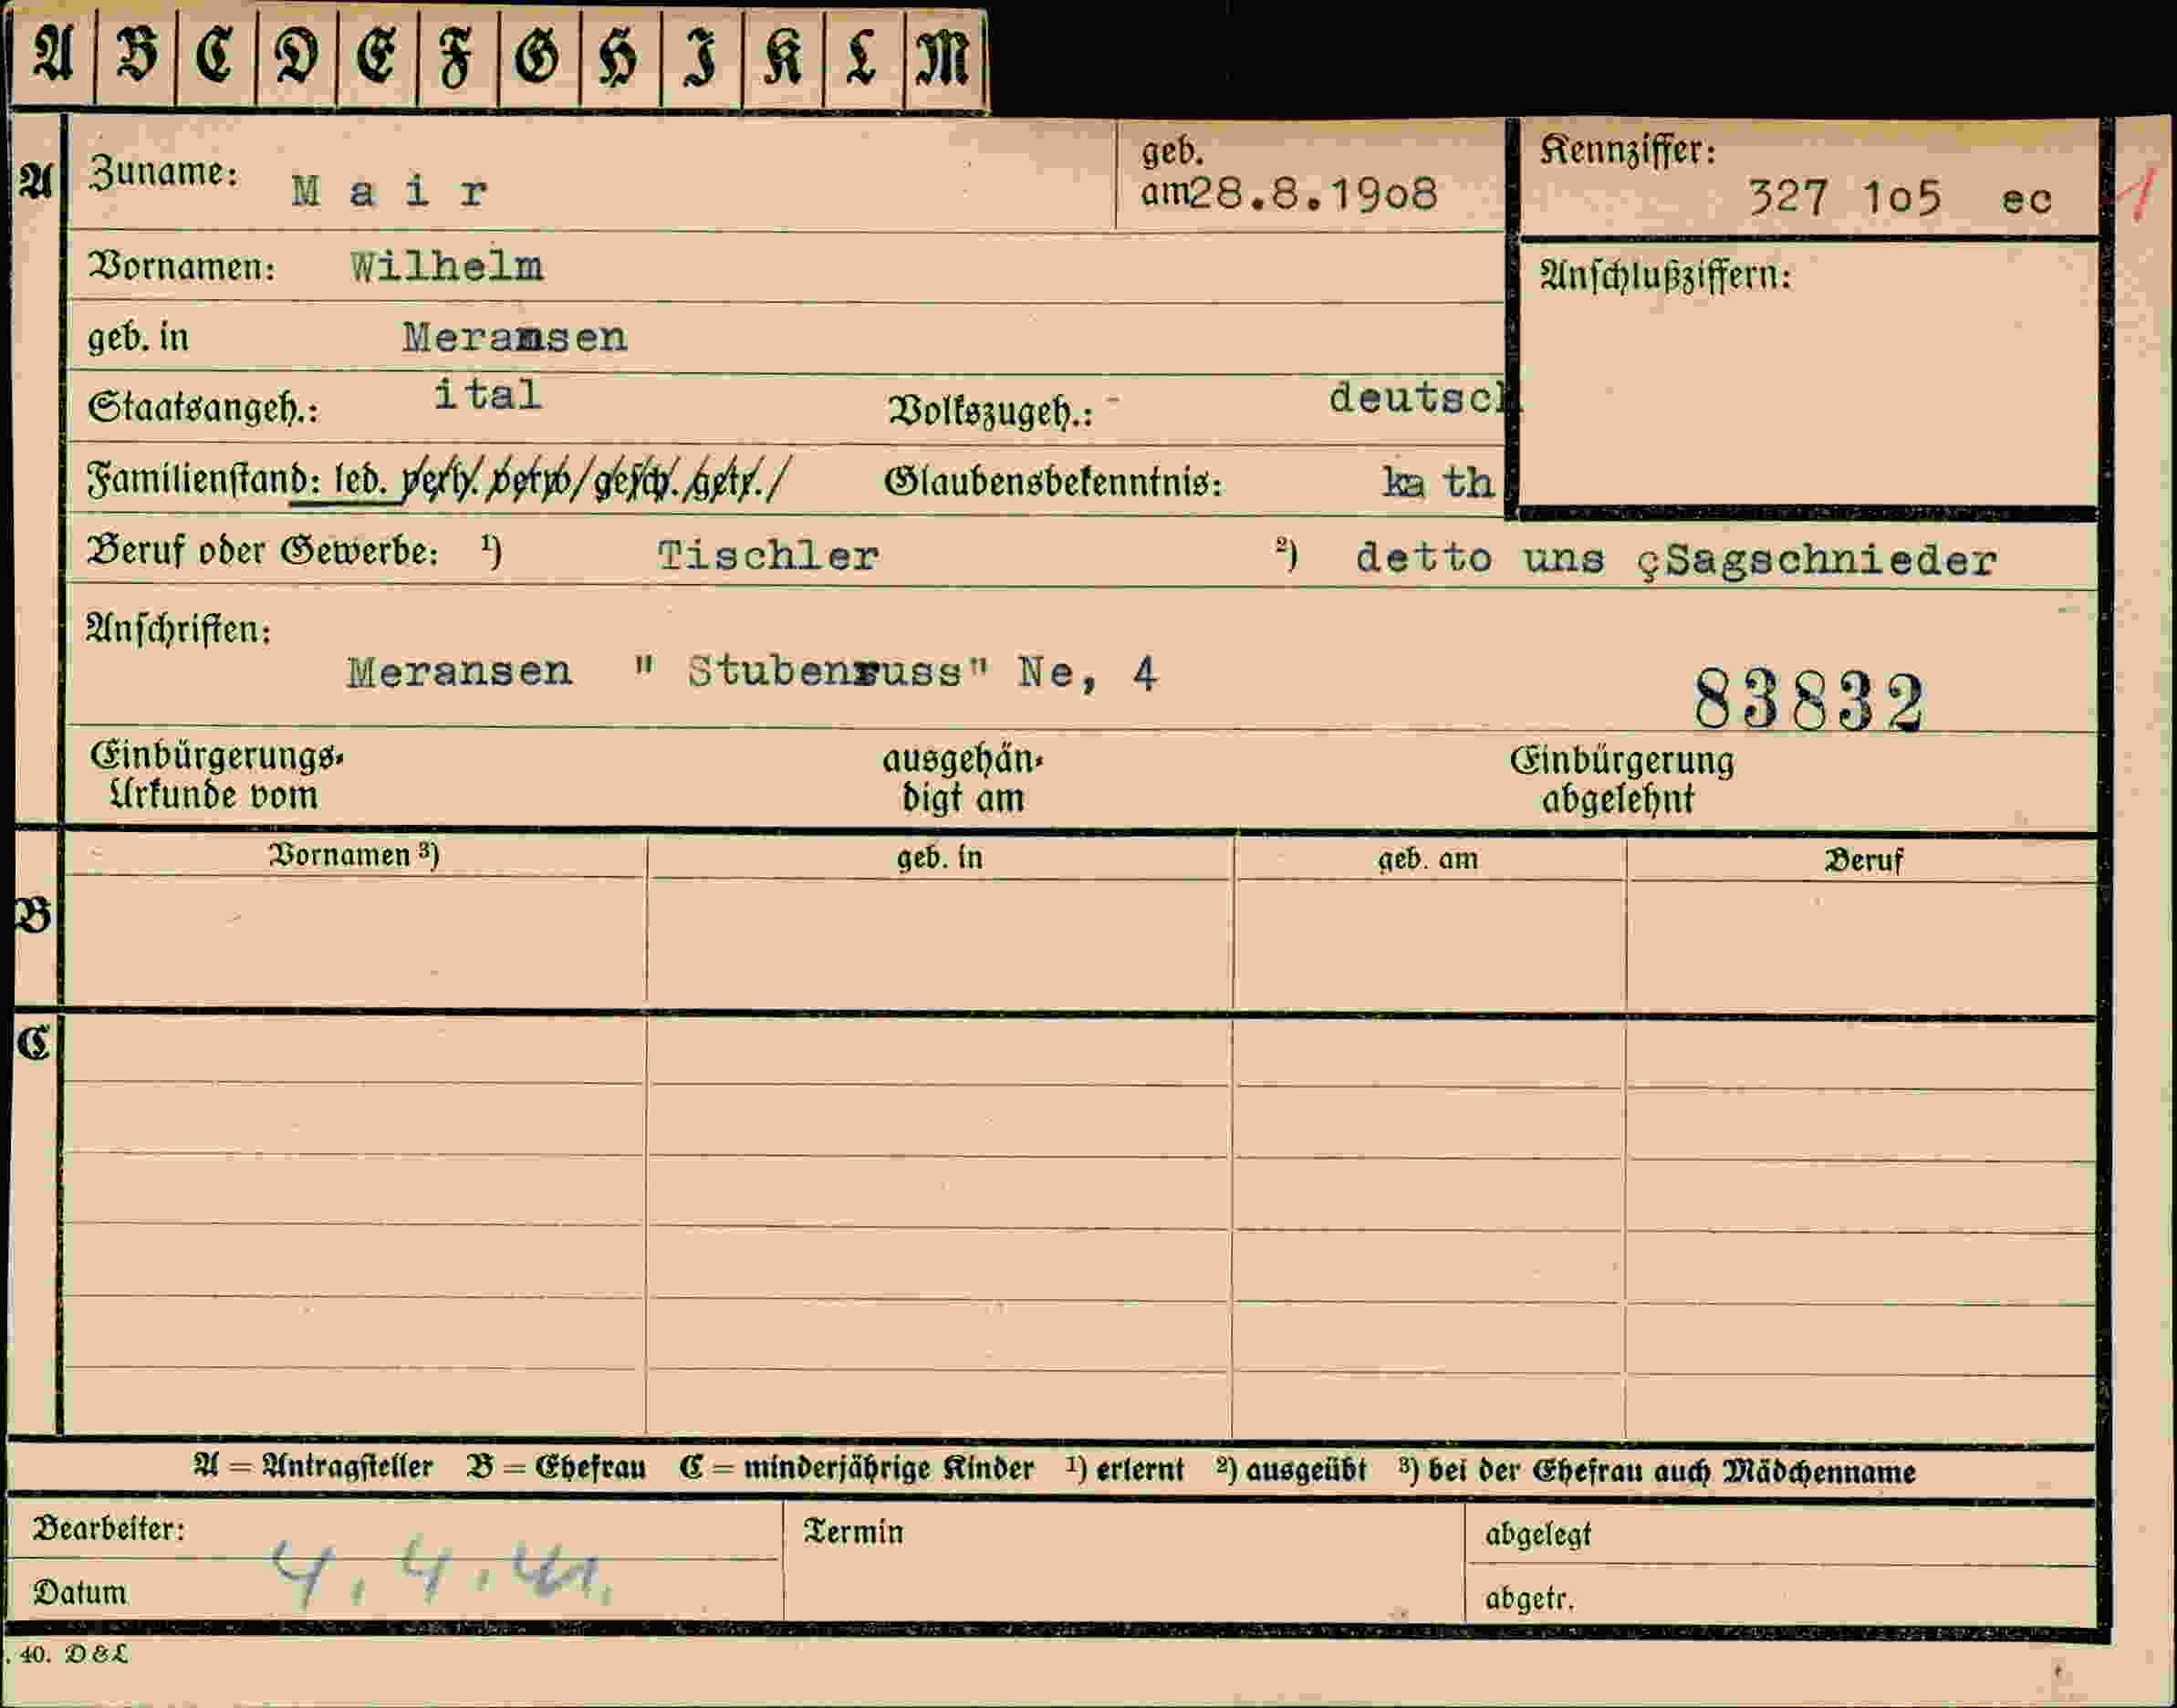 A B C D E F G H I K L M
A Zuname: Mair geb. am 28.8.19o8 Kennziffer: 327 1o5 ec 1
Vornamen: Wilhelm Anschlußziffern:
geb. in Meransen
Staatsangeh.: ital Volkszugeh.: deutsch
Familienstand: led. verh. verw. gesch. getr. Glaubensbekenntnis: ka th
Beruf oder Gewerbe: ¹) Tischler ²) detto uns çSagschnieder
Anschriften:
Meransen " Stubenruss" Ne, 4 83832
Einbürgerungs- ausgehän- Einbürgerung
Urkunde vom digt am abgelehnt
Vornamen ³) geb. in geb. am Beruf
B
C
A = Antragsteller B = Ehefrau C = minderjährige Kinder ¹) erlernt ²) ausgeübt ³) bei der Ehefrau auch Mädchenname
Bearbeiter: Termin abgelegt
4.4.41.
Datum abgetr.
. 40. D & L